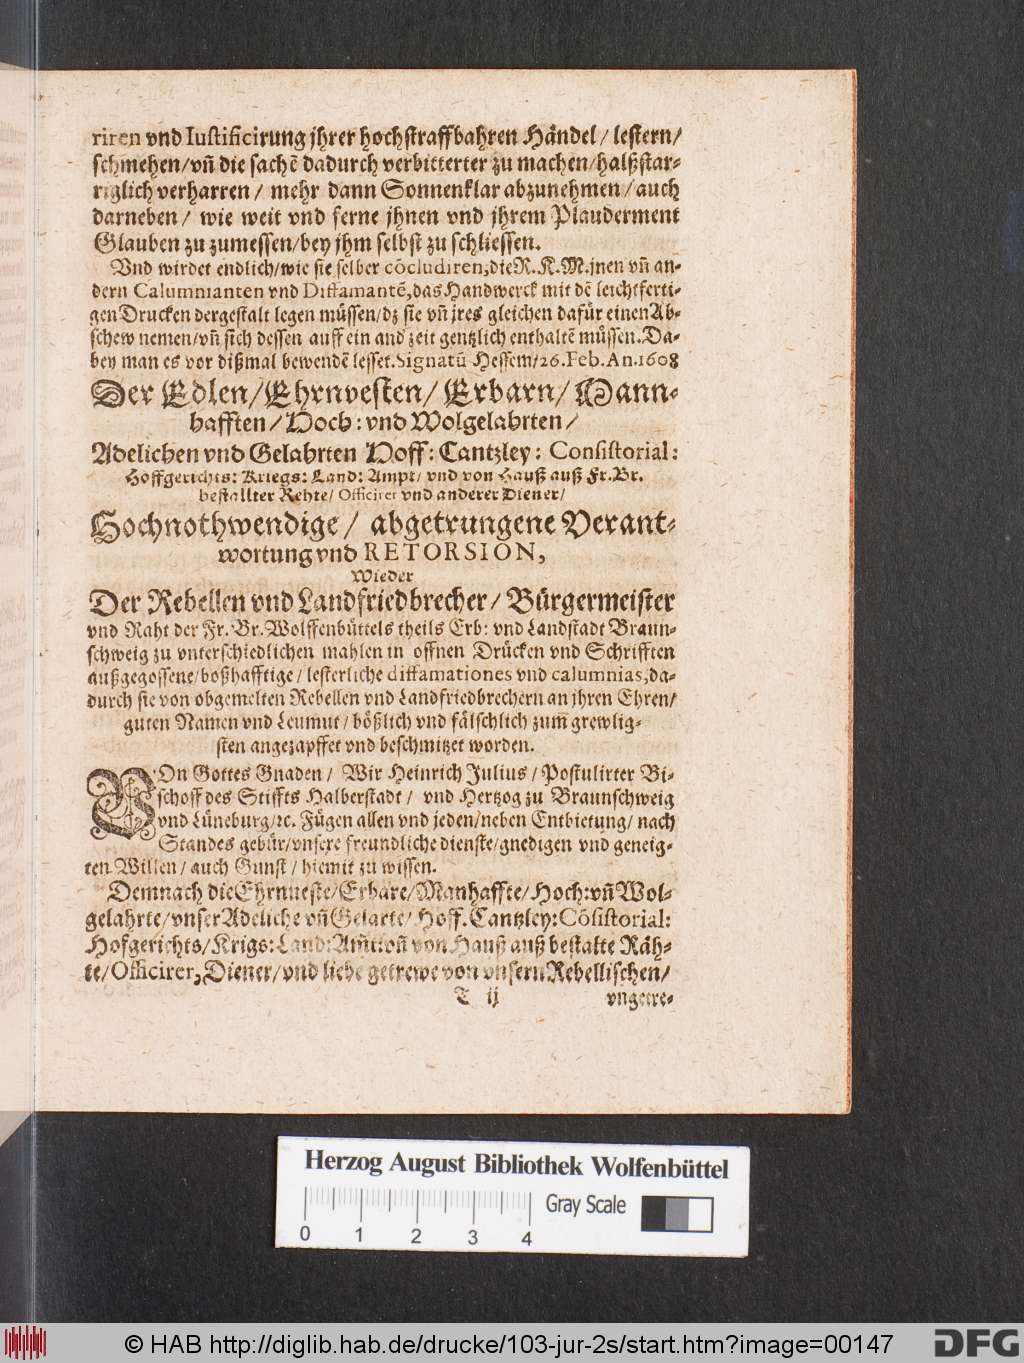 riren vnd Iustificirung jhrer hochstraffbahren Händel / lestern/
schmehen/vñ die sachẽ dadurch verbitterter zu machen/halßstar-
riglich verharren / mehr dann Sonnenklar abzunehmen / auch
darneben / wie weit vnd ferne jhnen vnd jhrem Plauderment
Glauben zu zumessen/bey jhm selbst zu schliessen.
Vnd wirdet endlich/wie sie selber cõcludiren,die R. K. M. jnen vñ an-
dern Calumnianten vnd Diffamantẽ,das Handwerck mit dẽ leichtferti-
gen Drucken dergestalt legen müssen/dz sie vñ jres gleichen dafür einen Ab-
schew nemen/vñ sich dessen auff ein and zeit gentzlich enthaltẽ müssen. Da-
bey man es vor dißmal bewendẽ lesset. Signatũ Hessem/26. Feb. An. 1608
Der Edlen/Ehrnvesten/ Erbarn/ Mann-
hafften / Hoch: vnd Wolgelahrten /
Adelichen vnd Gelahrten Hoff: Cantzley: Consistorial:
Hoffgerichts: Kriegs: Land: Ampt/ vnd von Hauß auß Fr. Br.
bestallter Rehte/ Officirer vnd anderer Diener/
Hochnothwendige / abgetrungene Verant-
wortung vnd RETORSION,
Wieder
Der Rebellen vnd Landfriedbrecher / Bürgermeister
vnd Raht der Fr. Br. Wolffenbüttels theils Erb: vnd Landstadt Braun-
schweig zu vnterschiedlichen mahlen in offnen Drücken vnd Schrifften
außgegossene/boßhafftige / lesterliche diffamationes vnd calumnias,da-
durch sie von obgemelten Rebellen vnd Landfriedbrechern an jhren Ehren/
guten Namen vnd Leumut / bößlich vnd fälschlich zum grewlig-
sten angezapffet vnd beschmitzet worden.
VOn Gottes Gnaden / Wir Heinrich Julius / Postulirter Bi-
schoff des Stiffts Halberstadt / vnd Hertzog zu Braunschweig
vnd Lüneburg/ꝛc. Fügen allen vnd jeden/neben Entbietung/ nach
Standes gebür/vnsere freundliche dienste/gnedigen vnd geneig-
ten Willen / auch Gunst / hiemit zu wissen.
Demnach die Ehrnueste/Erbare/Manhaffte/ Hoch:vñ Wol-
gelahrte/vnser Adeliche vñ Gelarte/ Hoff. Cantzley: Cõsistorial:
Hofgerichts/Krigs: Land: Am̃t vñ von Hauß auß bestalte Räh-
te/Officirer, Diener/vnd liebe getrewe von vnsern Rebellischen/
T ij vngetre-
Herzog August Bibliothek Wolfenbüttel
Gray Scale
0 1 2 3 4
© HAB http://diglib.hab.de/drucke/103-jur-2s/start.htm?image=00147
DFG